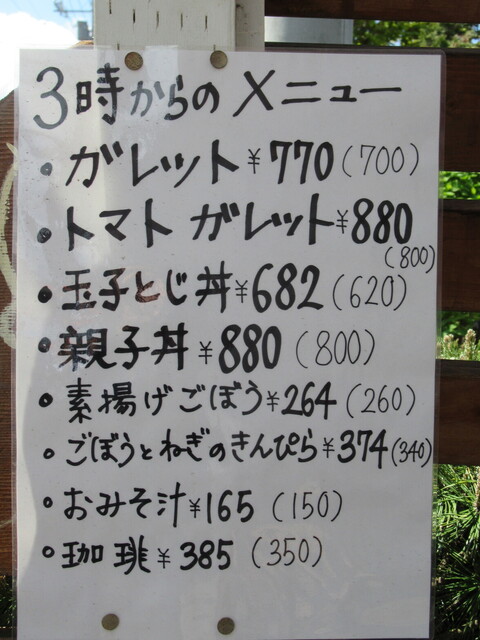 3時からのメニュー
• ガレット ¥770(700)
• トマト ガレット ¥880
(800)
• 玉子とじ丼 ¥682(620)
• 親子丼 ¥880(800)
• 素揚げごぼう ¥264(260)
• ごぼうとねぎのきんぴら ¥374(340)
• おみそ汁 ¥165(150)
• 珈琲 ¥385(350)